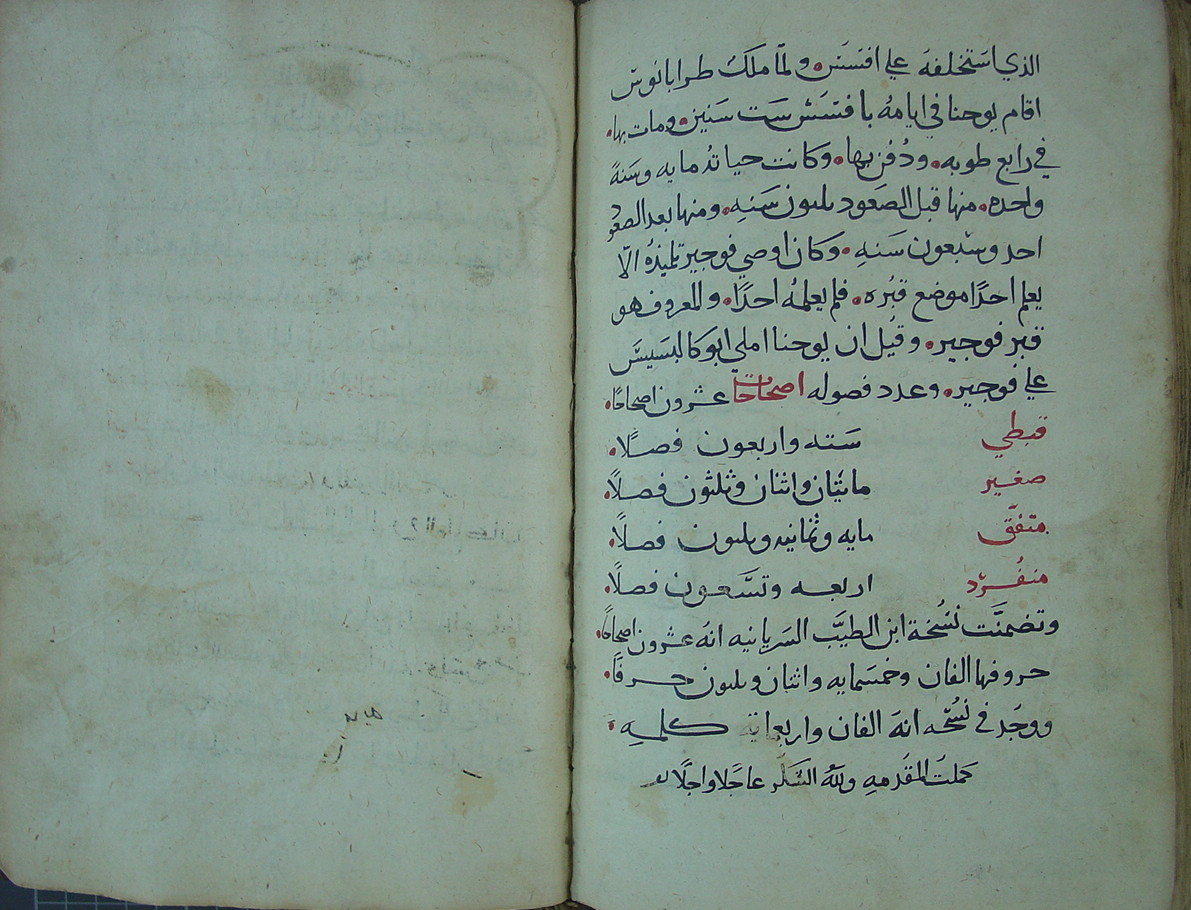 الذي استخلفه علي افسَسَن ولما ملك طرابانوس
اقام يوحنا في ايامه بافسَسُ ست سنين ومات بها
في رابع طوبه ودُفن بها وكانت حياته مايه وسنةً
واحده منها قبل الصعود ثلثون سَنهِ ومنها بعد الصعود
احد وسبعون سَنهِ وكان اوصي فوجير تلميذهُ الّا
يعلم احدًا موضع قبره فلم يعلمُه احدًا والمعروف هو
قبر فوجير وقيل ان يوحنا املي ابوكالبسيسَ
علي فوجير وعدد فصوله اصحاحات عشرون اصحاحًا
قبطي ستة واربعون فصلًا
صغير مائتان واثنان وثلثون فصلًا
متفق مايه وثمانيه وثلثون فصلًا
منفرد اربعه وتسَعون فصلًا
وتضمنَت نسُخة ابن الطيّب السَريانيه انهُ عشرون اصحاحًا
حروفها الفان وخمسَمايه واثنان وثلثون حرفًا
ووجَد في نسُخه انهَ الفان واربعمايه كلمهِ
كملت المقدمهِ ولله الشكر عاجلا واجلًا